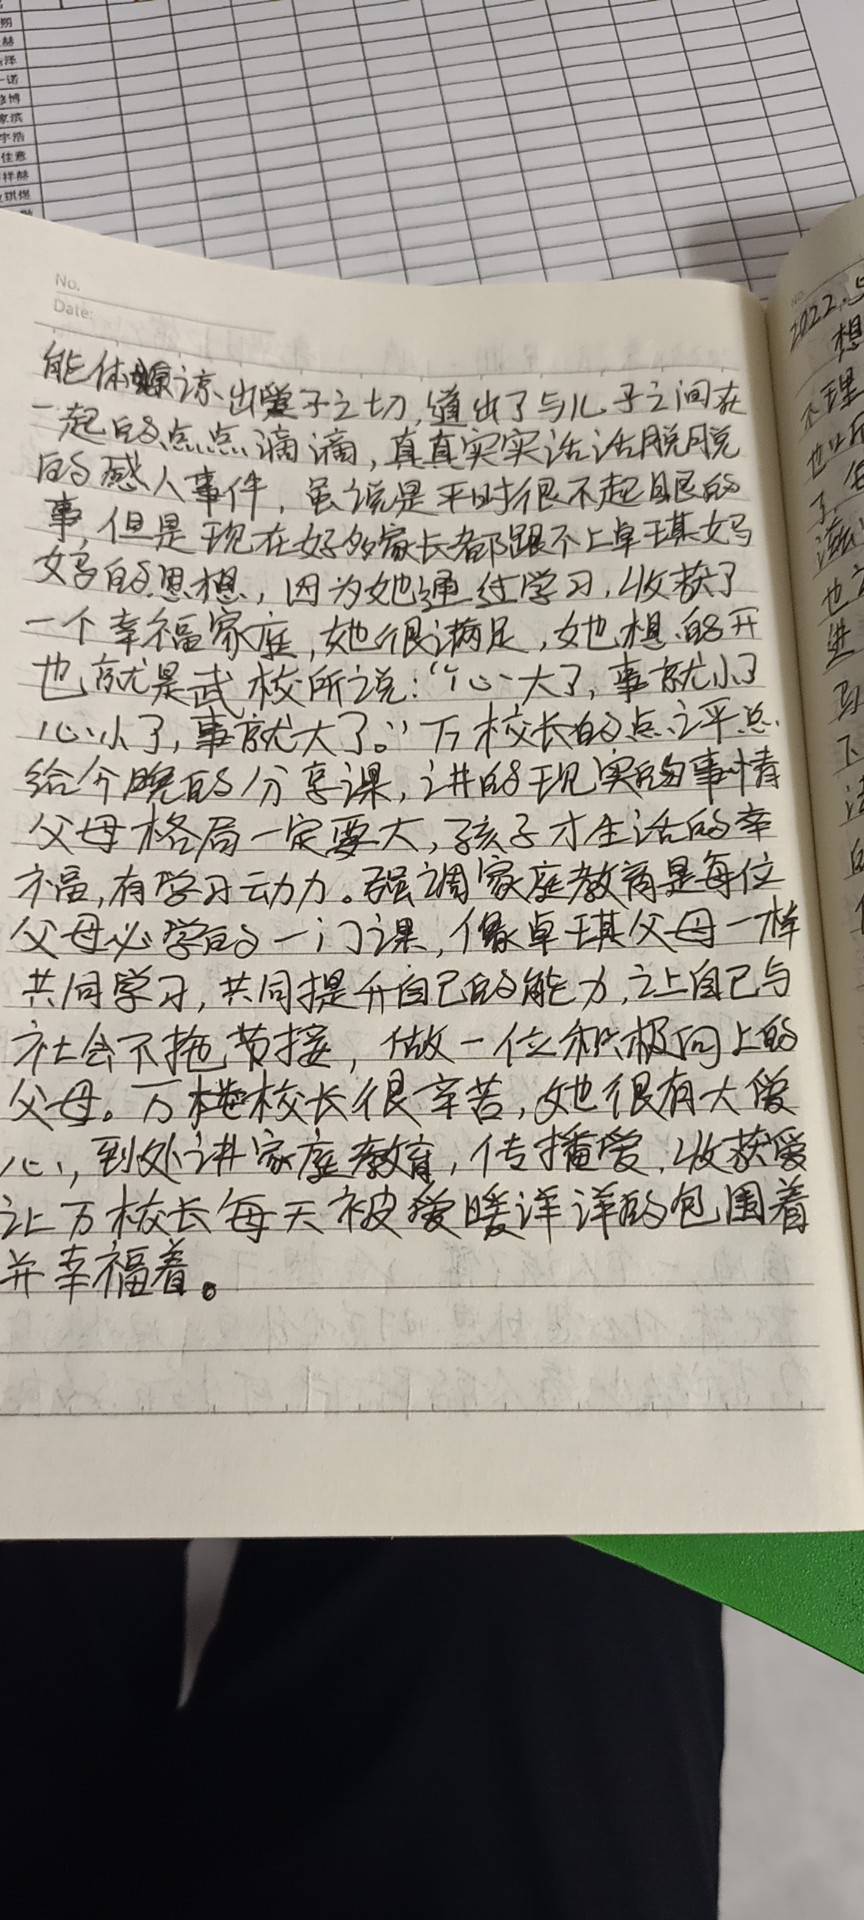 No.
Date:
能体谅出爱子之切,道出了与儿子之间在
一起的点点滴滴,真真实实活活脱脱
的感人事件,虽说是平时很不起眼的
事,但是现在好多家长都跟不上卓琪妈
妈的思想,因为她通过学习,收获了
一个幸福家庭,她很满足,她想的开
也就是武校所说:“心大了,事就小了
心小了,事就大了。”万校长的点评总
给今晚的分享课,讲的现实的事情
父母格局一定要大,孩子才生活的幸
福,有学习动力。强调家庭教育是每位
父母必学的一门课,像卓琪父母一样
共同学习,共同提升自己的能力,让自己与
社会不拖节接,做一位积极向上的
父母。万校长很辛苦,她很有大爱
心,到处讲家庭教育,传播爱,收获爱
让万校长每天被爱暖洋洋的包围着
并幸福着。
2022.
想
不理
也以
了
也
进
下
的